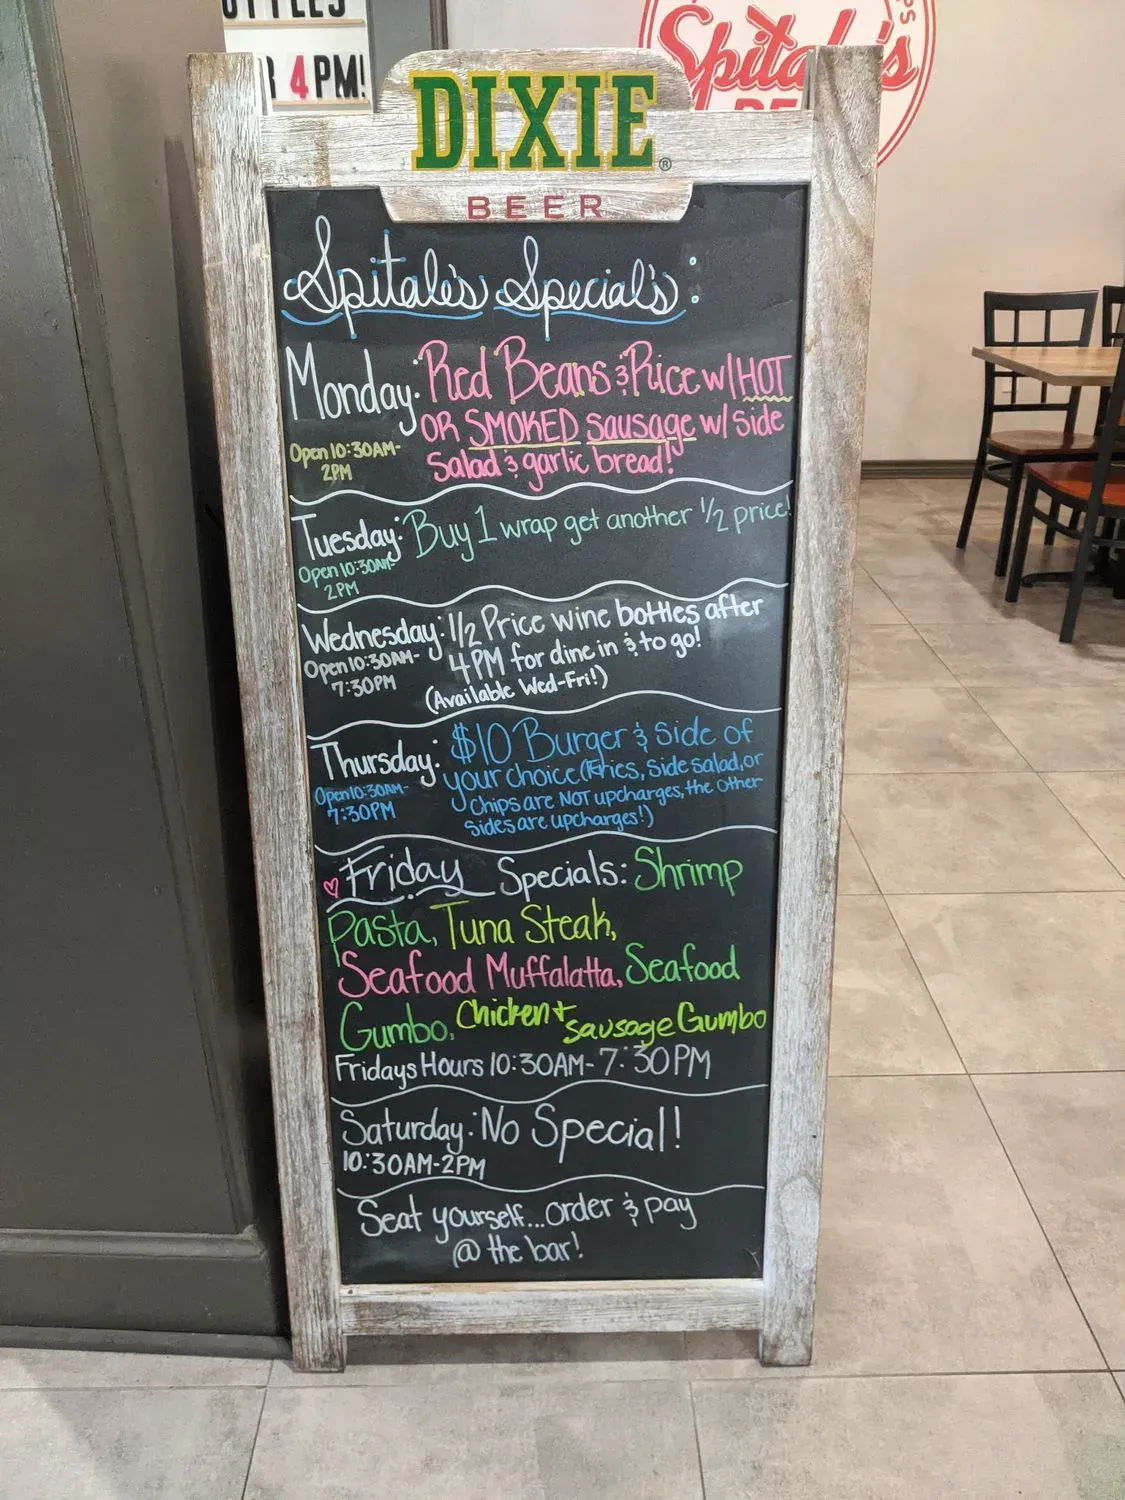 R 4 PM!
Spitale's
DIXIE®
BEER
Spitale's Special's:
Monday: Red Beans & Rice w/ HOT
OR SMOKED sausage w/ side
salad & garlic bread!
Open 10:30AM-
2PM
Tuesday: Buy 1 wrap get another 1/2 price!
Open 10:30AM-
2PM
Wednesday: 1/2 Price wine bottles after
4PM for dine in & to go!
(Available Wed-Fri!)
Open 10:30AM-
7:30PM
Thursday: $10 Burger & Side of
your choice (Fries, side salad, or
chips are NOT upcharges, the other
sides are upcharges!)
Open 10:30AM-
7:30PM
Friday Specials: Shrimp
Pasta, Tuna Steak,
Seafood Muffalatta, Seafood
Gumbo, Chicken + sausage Gumbo
Fridays Hours 10:30AM-7:30PM
Saturday: No Special!
10:30AM-2PM
Seat yourself... order & pay
@ the bar!